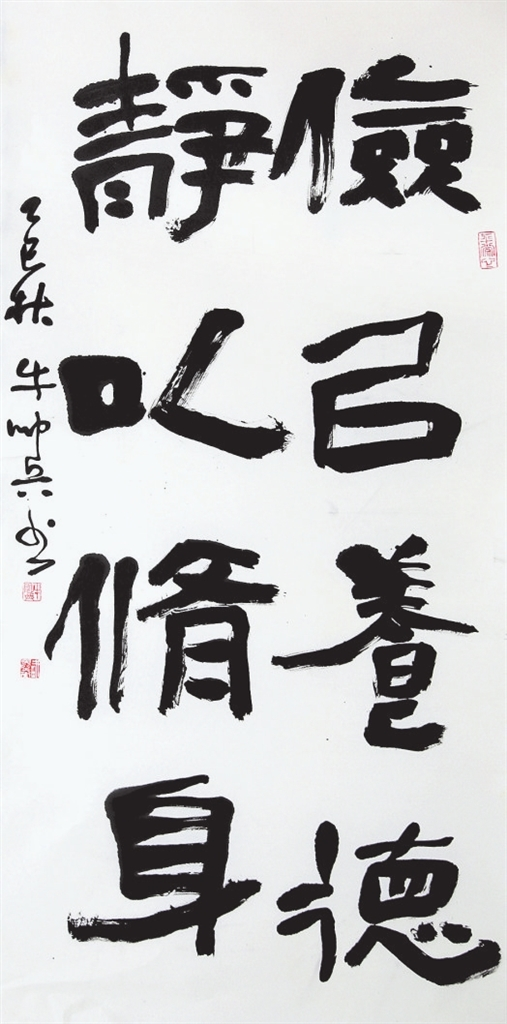 儉㠯養德
靜以脩身
乙巳秋 牛帅兵书